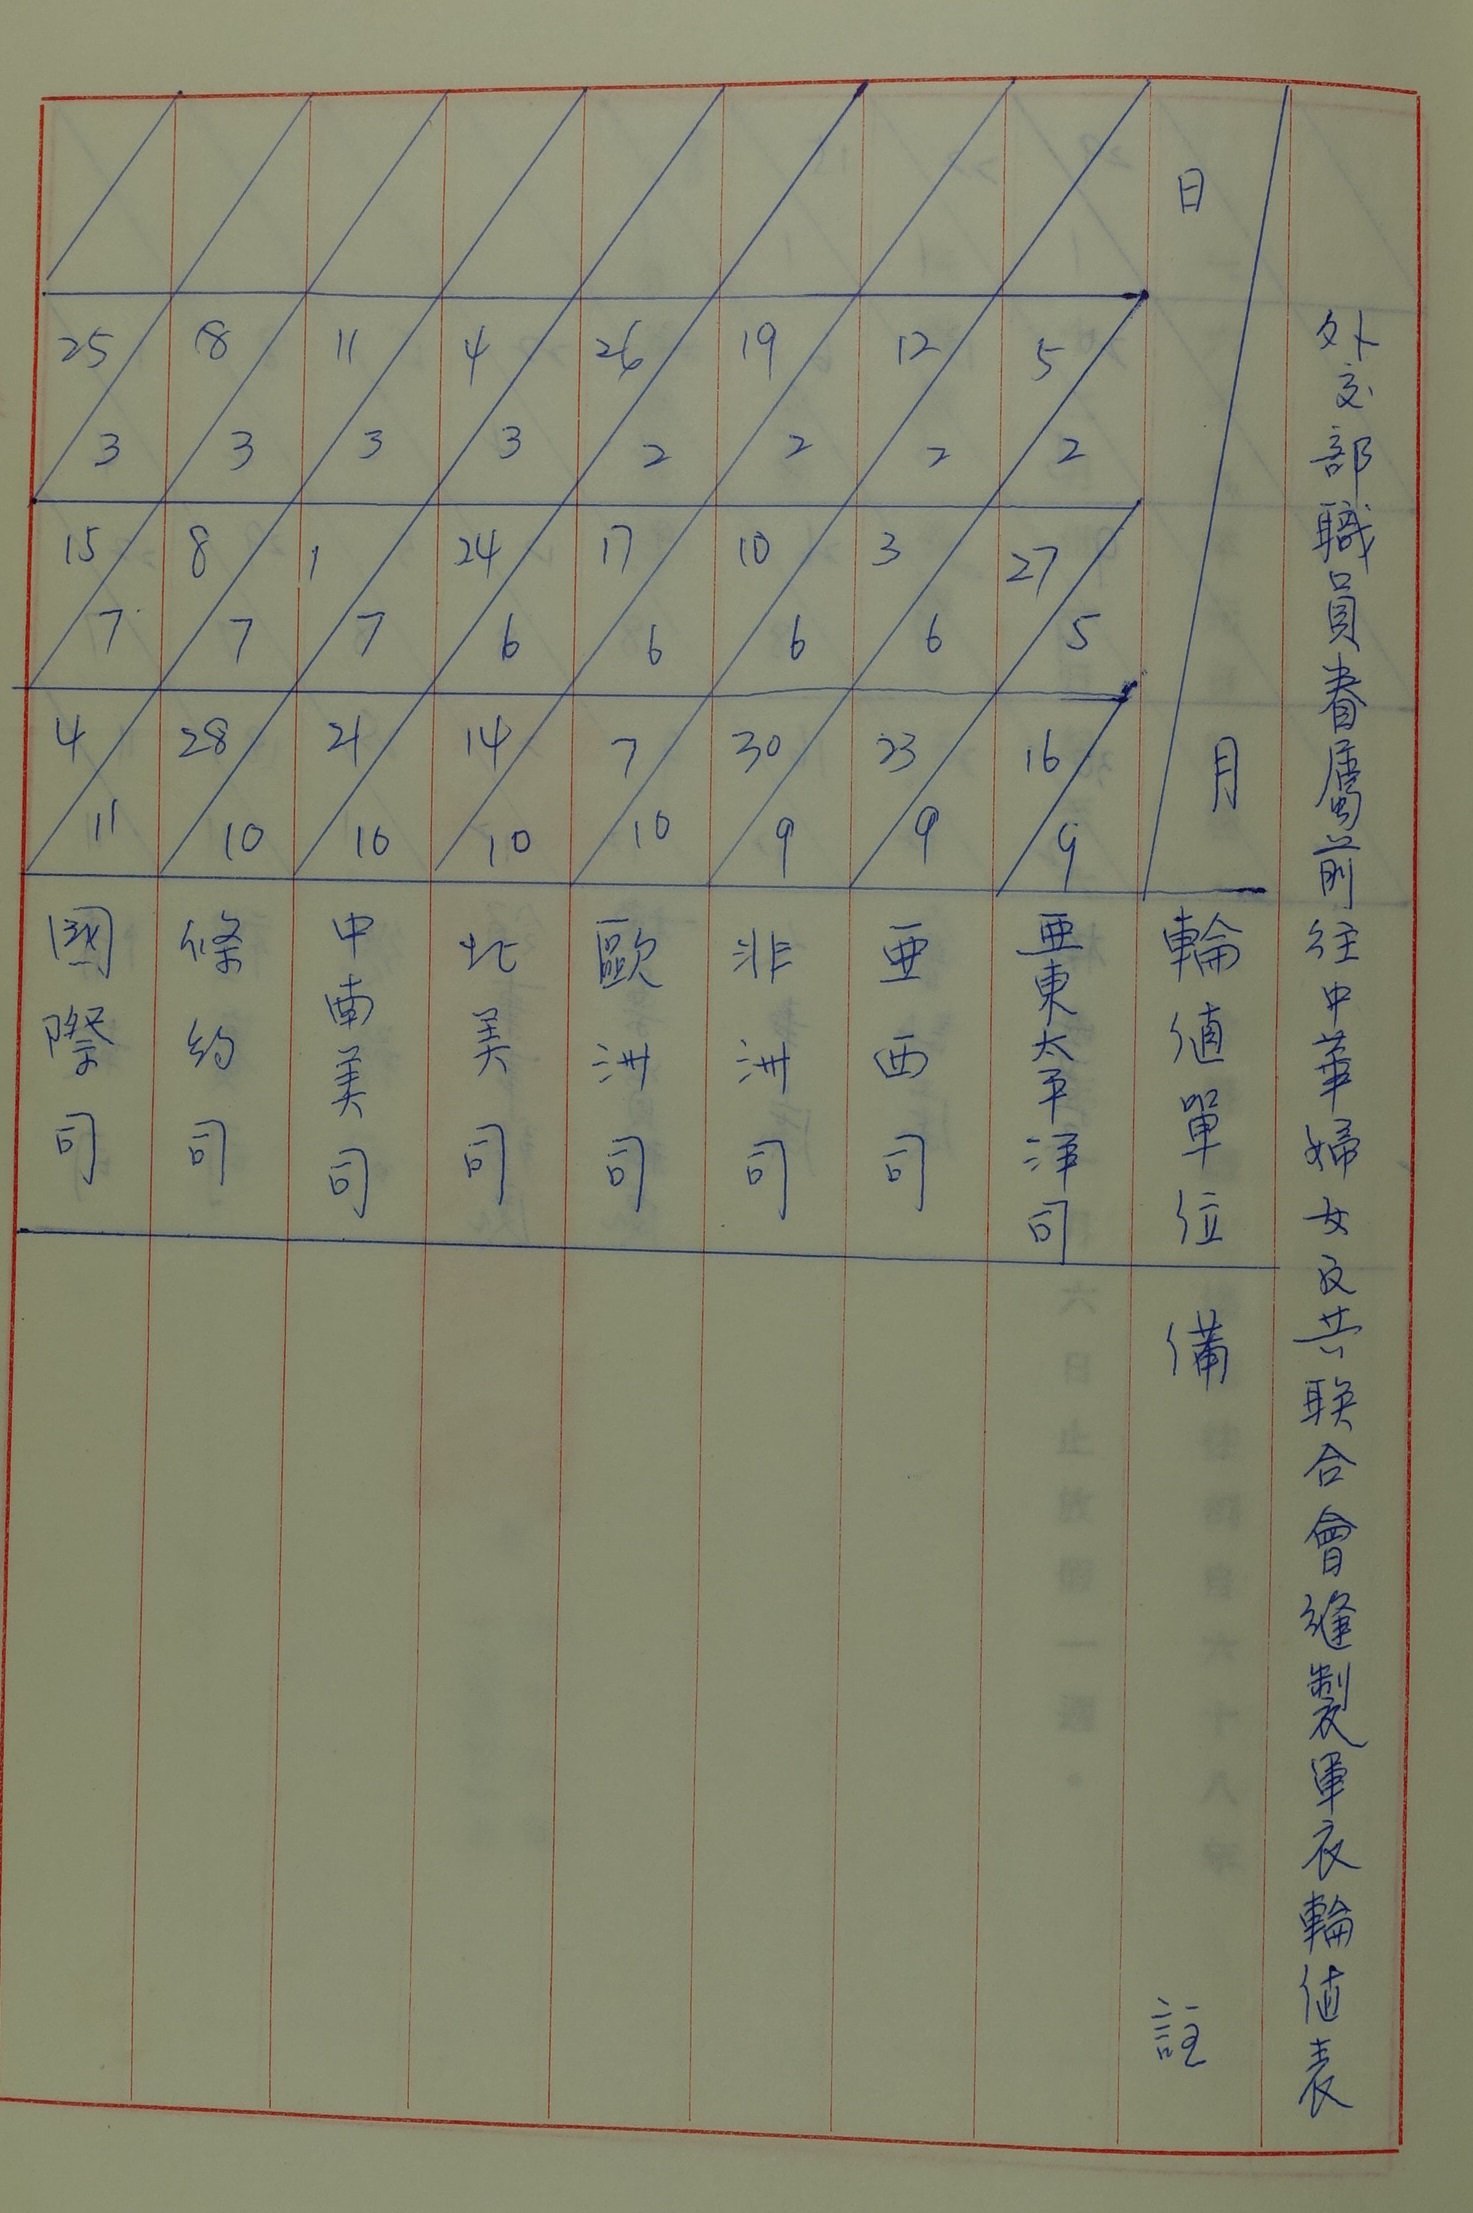 外交部職員眷屬前往中華婦女反共联合會縫製軍衣輪值表
日 月 輪值單位 備註
5 2 27 5 16 9 亜東太平洋司
12 2 3 6 23 9 亜西司
19 2 10 6 30 9 非洲司
26 2 17 6 7 10 歐洲司
4 3 24 6 14 10 北美司
11 3 1 7 21 10 中南美司
18 3 8 7 28 10 條約司
25 3 15 7 4 11 國際司